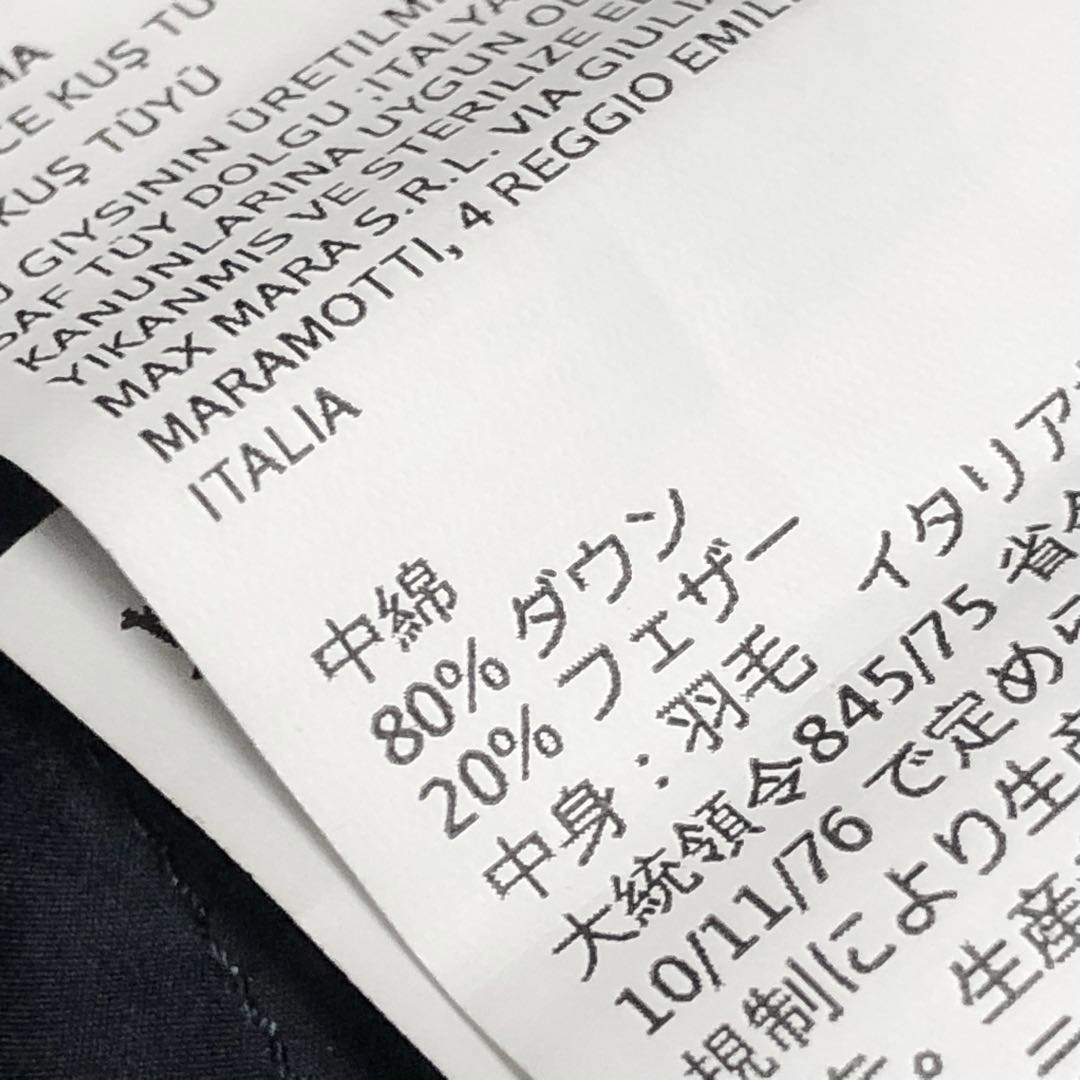 CE KUŞ TÜ
KUŞ TÜYÜ
GIYSININ ÜRETILM
SAF TÜY DOLGU ;ITALYA
KANUNLARINA UYGUN OL
YIKANMIS VE STERILIZE E
MAX MARA S.R.L. VIA GIULIA
MARAMOTTI, 4 REGGIO EMIL
ITALIA
中綿
80% ダウン
20% フェザー
中身 : 羽毛 イタリア
大統領令845/75 省
10/11/76 で定め
規制により生産
生産